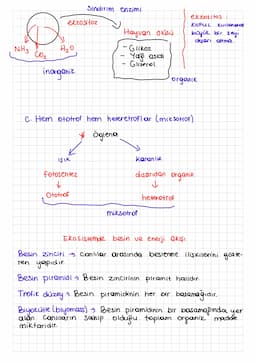 Sindirim enzimi
ekzositoz
Hayvan ölüsü
NH3 CO2 H2O
- Glikoz
- Yağ asidi
- Gliserol
inorganik
organik
ekzositoz:
koful kullanarak
büyük bir şeyi
dışarı atma.
C. Hem ototrof hem heterotroflar (miksotrof)
Öglena
ışık
karanlık
fotosentez
dışarıdan organik
Ototrof
heterotrof
miksotrof
Ekosistemde besin ve enerji akışı
Besin zinciri → Canlılar arasında beslenme ilişkilerini göste-
ren yapıdır.
Besin piramidi → Besin zincirinin piramit halidir.
Trofik düzey → Besin piramidinin her bir basamağıdır.
Biyokütle (biyomas) → Besin piramidinin bir basamağında yer
alan canlıların sahip olduğu toplam organik madde
miktarıdır.